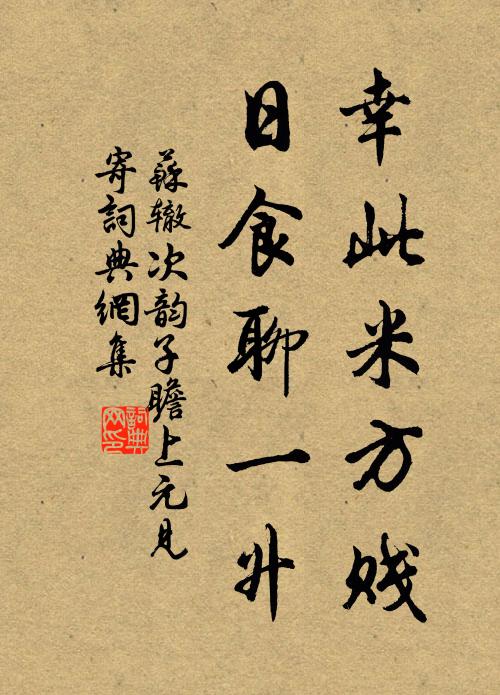 幸此米方贱
日食聊一升
蘇辙次韵子瞻上元見
寄詞典網集
詞典网印